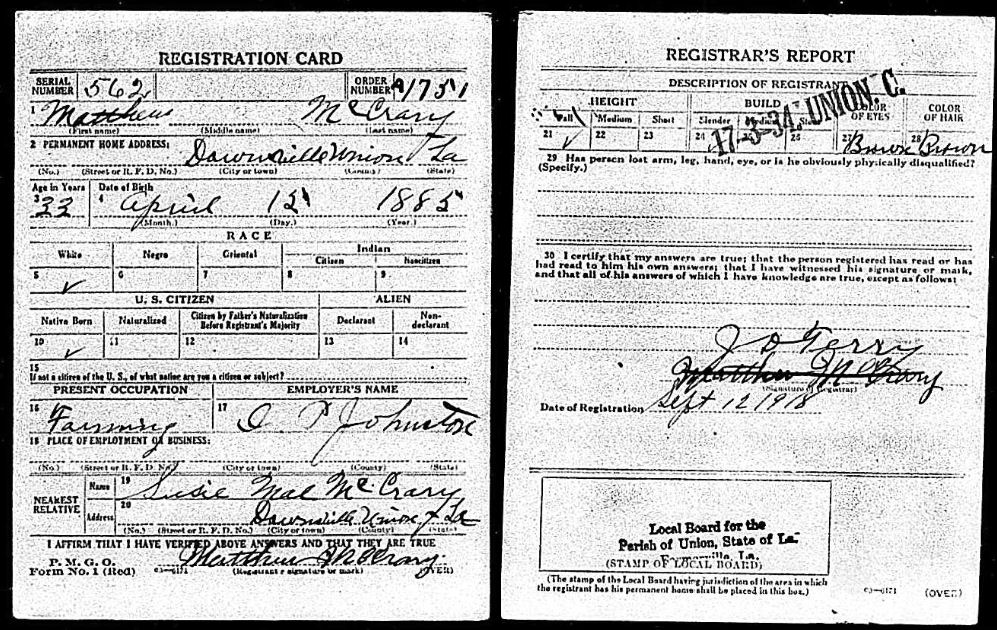 REGISTRATION CARD
SERIAL NUMBER 562 ORDER NUMBER A1751
1 Matthew McCrary
(First name) (Middle name) (Last name)
2 PERMANENT HOME ADDRESS:
Downsville Union La
(No.) (Street or R. F. D. No.) (City or town) (County) (State)
Age in Years Date of Birth
3 33 4 April 15 1885
(Month.) (Day.) (Year.)
RACE
White Negro Oriental Indian
Citizen Noncitizen
5 ✓ 6 7 8 9
U. S. CITIZEN ALIEN
Native Born Naturalized Citizen by Father's Naturalization Before Registrant's Majority Declarant Non-declarant
10 ✓ 11 12 13 14
15
If not a citizen of the U. S., of what nation are you a citizen or subject?
PRESENT OCCUPATION EMPLOYER'S NAME
16 Farming 17 O. P. Johnston
18 PLACE OF EMPLOYMENT OR BUSINESS:
(No.) (Street or R. F. D. No.) (City or town) (County) (State)
NEAREST RELATIVE Name 19 Susie Mae McCrary
Address 20 Downsville Union La
(No.) (Street or R. F. D. No.) (City or town) (County) (State)
I AFFIRM THAT I HAVE VERIFIED ABOVE ANSWERS AND THAT THEY ARE TRUE
P. M. G. O.
Form No. 1 (Red) 03-6171 Matthew McCrary
(Registrant's signature or mark) (OVER)
REGISTRAR'S REPORT
DESCRIPTION OF REGISTRANT
HEIGHT BUILD COLOR OF EYES COLOR OF HAIR
Tall Medium Short Slender Medium Stout
21 22 23 24 26 27 Brown 28 Brown
17-3-34. UNION. C.
29 Has person lost arm, leg, hand, eye, or is he obviously physically disqualified?
(Specify.)
30 I certify that my answers are true; that the person registered has read or has
had read to him his own answers; that I have witnessed his signature or mark,
and that all of his answers of which I have knowledge are true, except as follows:
J D Terry
Matthew McCrary
(Signature of Registrar)
Date of Registration Sept 12 1918
Local Board for the
Parish of Union, State of La.
Farmerville, La.
(STAMP OF LOCAL BOARD)
(The stamp of the Local Board having jurisdiction of the area in which
the registrant has his permanent home shall be placed in this box.)
03-6171 (OVER)